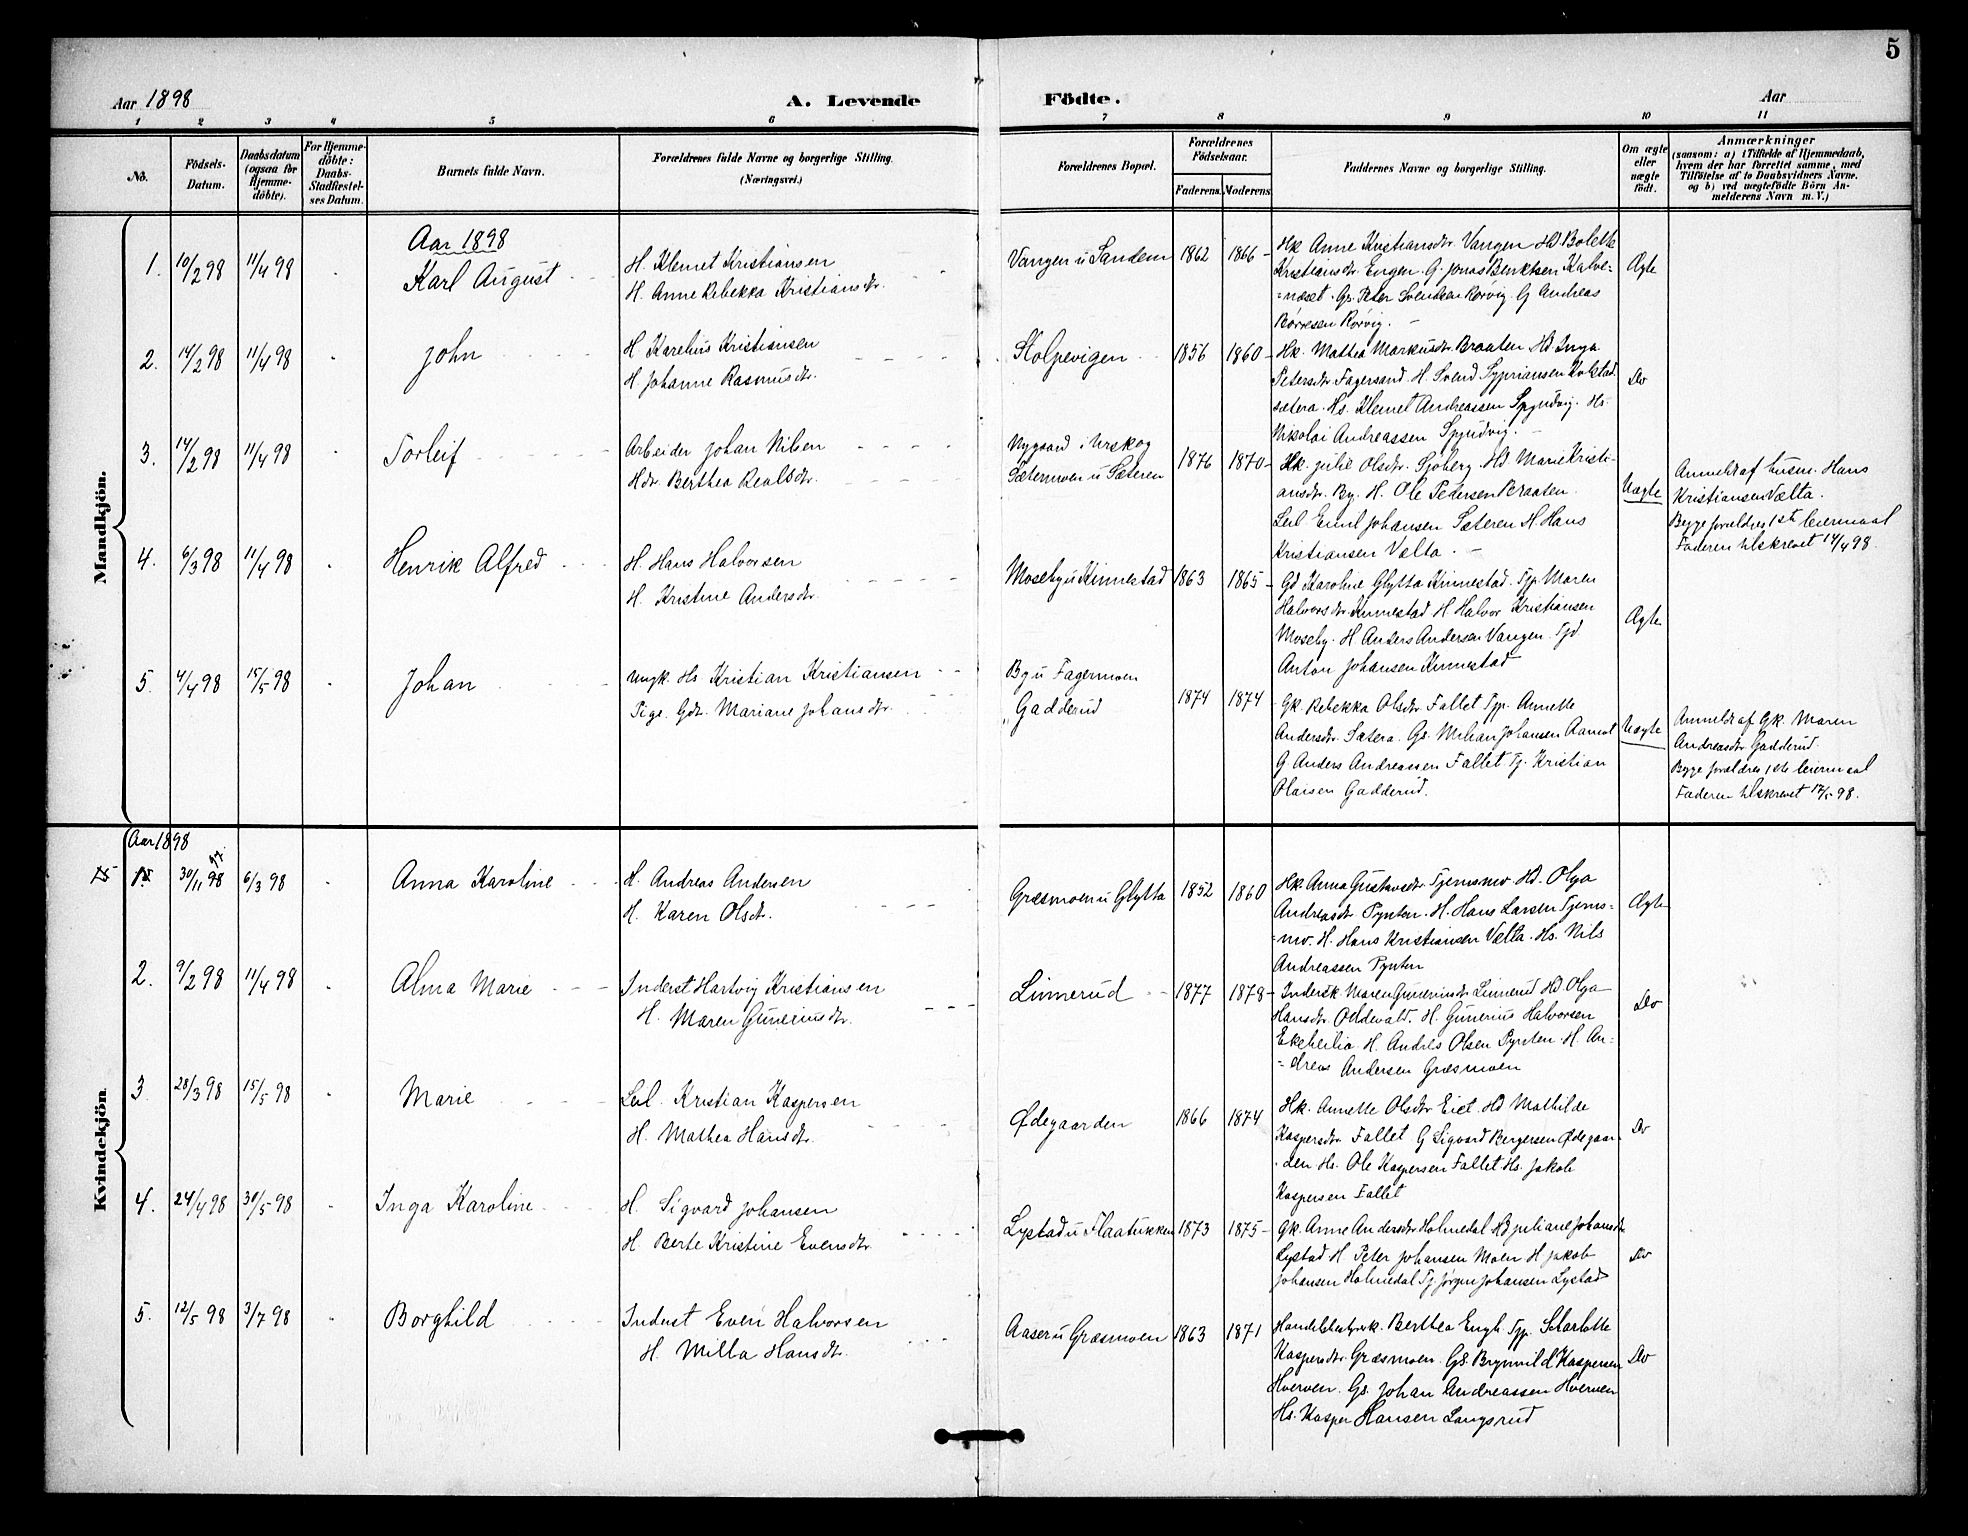 5
Aar 1898
A. Levende Födte.
Aar
1 2 3 4 5 6 7 8 9 10 11
No.
Födsels-Datum.
Daabsdatum (ogsaa for Hjemme-döbte).
For Hjemme-döbte: Daabs-Stadfæstel-ses Datum.
Barnets fulde Navn.
Forældrenes fulde Navne og borgerlige Stilling.
(Næringsvei.)
Forældrenes Bopæl.
Forældrenes Födselsaar.
Faderens. Moderens.
Faddernes Navne og borgerlige Stilling.
Om ægte eller uægte födt.
Anmærkninger
(saasom: a) i Tilfælde af Hjemmedaab,
hvem der har forrettet samme, med
Tilföielse af to Daabsvidners Navne,
og b) ved uægtefödte Börn An-
melderens Navn m. V.)
Mandkjön.
Aar 1898
1. 10/2 98 11/4 98 Karl August
H. Klemet Kristiansen
H. Anne Rebekka Kristiansdtr.
Vangen u Sandem 1862 1866
Hk. Anne Kristiansdtr. Vangen Hd Bolette
Kristiansdtr. Engen. G. Jonas Benktsen Kalve-
=næset. Gs. Peter Svendsen Rørvig. G Andreas
Børresen Rørvig.
Ægte
2. 14/2 98 11/4 98 John
H Karelius Kristiansen
H Johanne Rasmusdtr.
Stolpevigen 1856 1860
Hk. Mathea Markusdtr. Braaten Hd Inga
Petersdtr. Fagersand. H. Svend Sypriansen Kolstad
sætera. Hs. Klemet Andreassen Spjudvig. Hs.
Nikolai Andreassen Spjudvig.
Do
3. 14/2 98 11/4 98 Torleif
Arbeider Johan Nilsen
Hdtr. Berthea Realsdtr.
Nygaard i Urskog
Sætermoen u Sæteren
1876 1870
Hk. Julie Olsdtr. Sjøberg. Hd Marie Kristi-
ansdtr. By. H. Ole Pedersen Braaten.
Leil Emil Johansen Sæteren H. Hans
Kristiansen Vælta.
Uægte
Anmeldt af husm. Hans
Kristiansen Vælta.
Begge forældres 1ste leiermaal
Faderen tilskrevet 14/4 98.
4. 6/3 98 11/4 98 Henrik Alfred
H. Hans Halvorsen
H. Kristine Andersdtr.
Moseby u Kinnestad 1863 1865
Gd Karoline Glytta Kinnestad. Tp Maren
Halvorsdtr. Kinnestad H Halvor Kristiansen
Moseby. H Anders Andersen Vangen. Tjd
Anton Johansen Kinnestad
Ægte
5. 4/4 98 15/5 98 Johan
Ungk. Hs Kristian Kristiansen
Pige. Gdt. Mariane Johansdtr.
By u Fagermoen
„ Gadderud
1874 1874
Gk. Rebekka Olsdtr. Fallet Tp. Annette
Andersdtr. Sætera. Gs. Milian Johansen Aamot
G Anders Andreassen Fallet Tj. Kristian
Olaisen Gadderud.
Uægte
Anmeldt af Gk. Maren
Andreasdtr. Gadderud.
Begge forældres 1ste leiermaal
Faderen tilskrevet 17/5 98.
Kvindekjön
Aar 1898
30/11 98 97 6/3 98 Anna Karoline
H. Andreas Andersen
H. Karen Olsdtr.
Græsmoen u Glytta 1852 1860
Hk. Anna Gustavsdtr. Tjernsmo. Hd. Olga
Andreasdtr Pynten. H. Hans Larsen Tjerns=
=mo. H. Hans Kristiansen Vælta. Hs. Nils
Andreassen Pynten
Ægte
2. 9/2 98 11/4 98 Alma Marie
Inderst Hartvig Kristiansen
H. Maren Guneriusdtr.
Linnerud 1877 1878
Indersk. Maren Guneriusdtr. Linnerud Hd Olga
Hansdtr. Oddevald. H. Gunerius Halvorsen
Ekeberlia H. Andr&s Olsen Pynten. H. An-
-dreas Andersen Græsmoen
Do
3. 28/3 98 15/5 98 Marie
Leil. Kristian Kaspersen
H. Mathea Hansdtr.
Ødegaarden 1866 1874
Hk. Annette Olsdtr. Eiet. Hd Mathilde
Kaspersdtr. Fallet G Sigvard Bergersen Ødegaar-
-den Hs. Ole Kaspersen Fallet Hs. Jakob
Kaspersen Fallet
Do
4. 24/4 98 30/5 98 Inga Karoline
H. Sigvard Johansen
H Berte Kristine Evensdtr.
Lystad u Flaatukken 1873 1875
Gk. Anne Andersdtr Holmedal Hd Juliane Johansdtr
Lystad H Peter Johansen Moen H Jakob
Johansen Holmedal Tj Jørgen Johansen Lystad
Do
5. 12/5 98 3/7 98 Borghild
Inderst Even Halvorsen
H. Milla Hansdtr.
Aaser u Græsmoen 1863 1871
Handelsbestyrk. Berthea Engh Tp. Scharlotte
Kaspersdtr. Græsmoen. Gs. Brynnild Kaspersen
Hverven. Gs. Johan Andreassen Hverven
Hs. Kasper Hansen Langsrud
Do